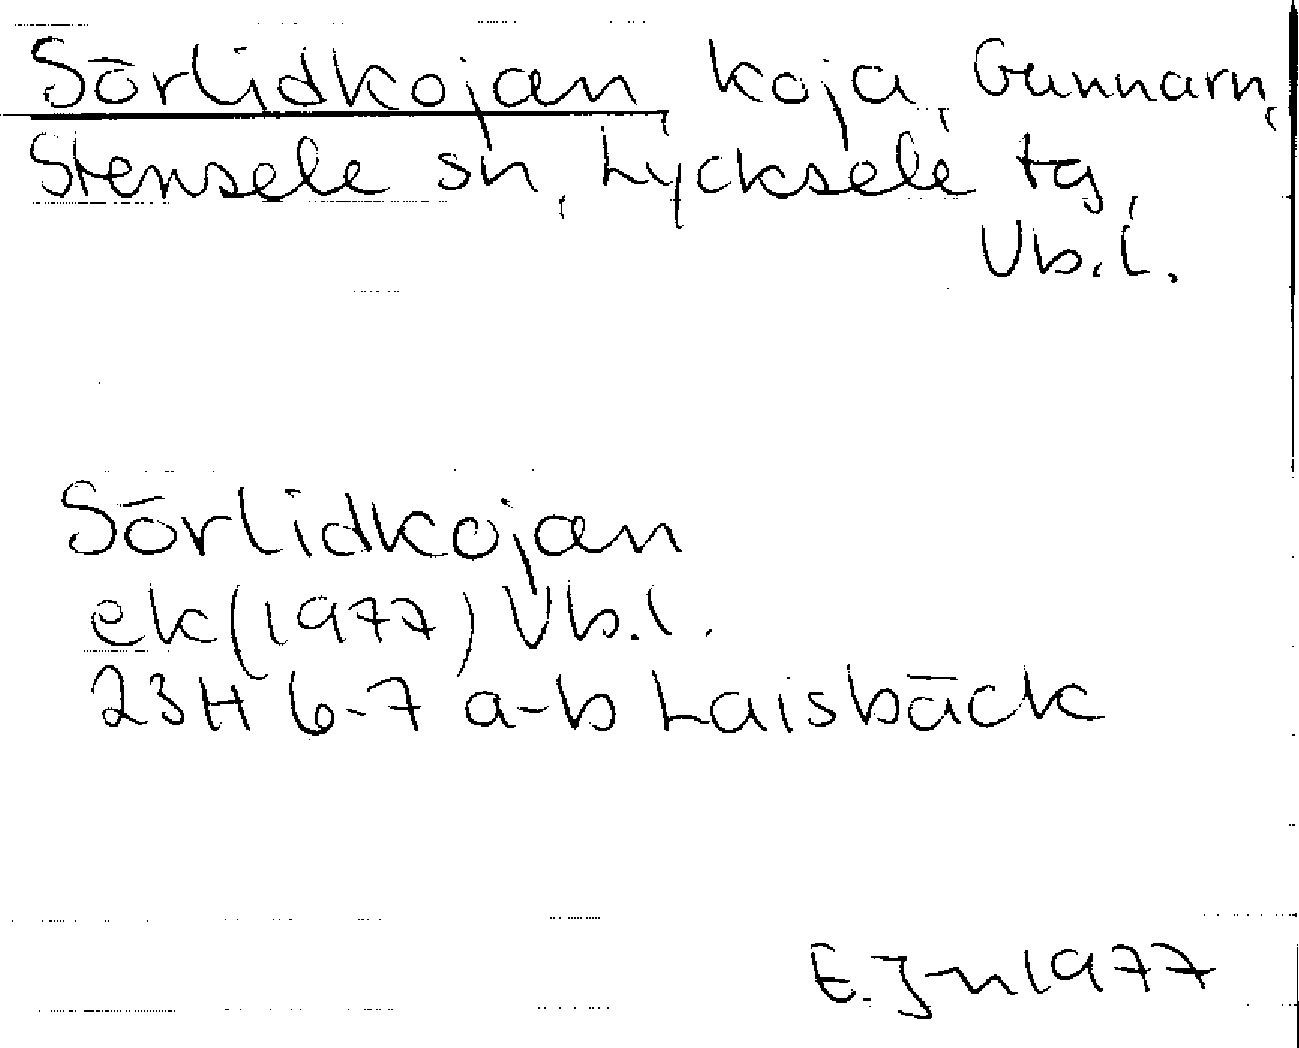 Sörlidkojan, koja, Gunnarn,
Stensele sn, Lycksele tg,
Vb.l.
Sörlidkojan
ek(1977) Vb.l.
23H 6-7 a-b Laisbäck
E. Jn 1977